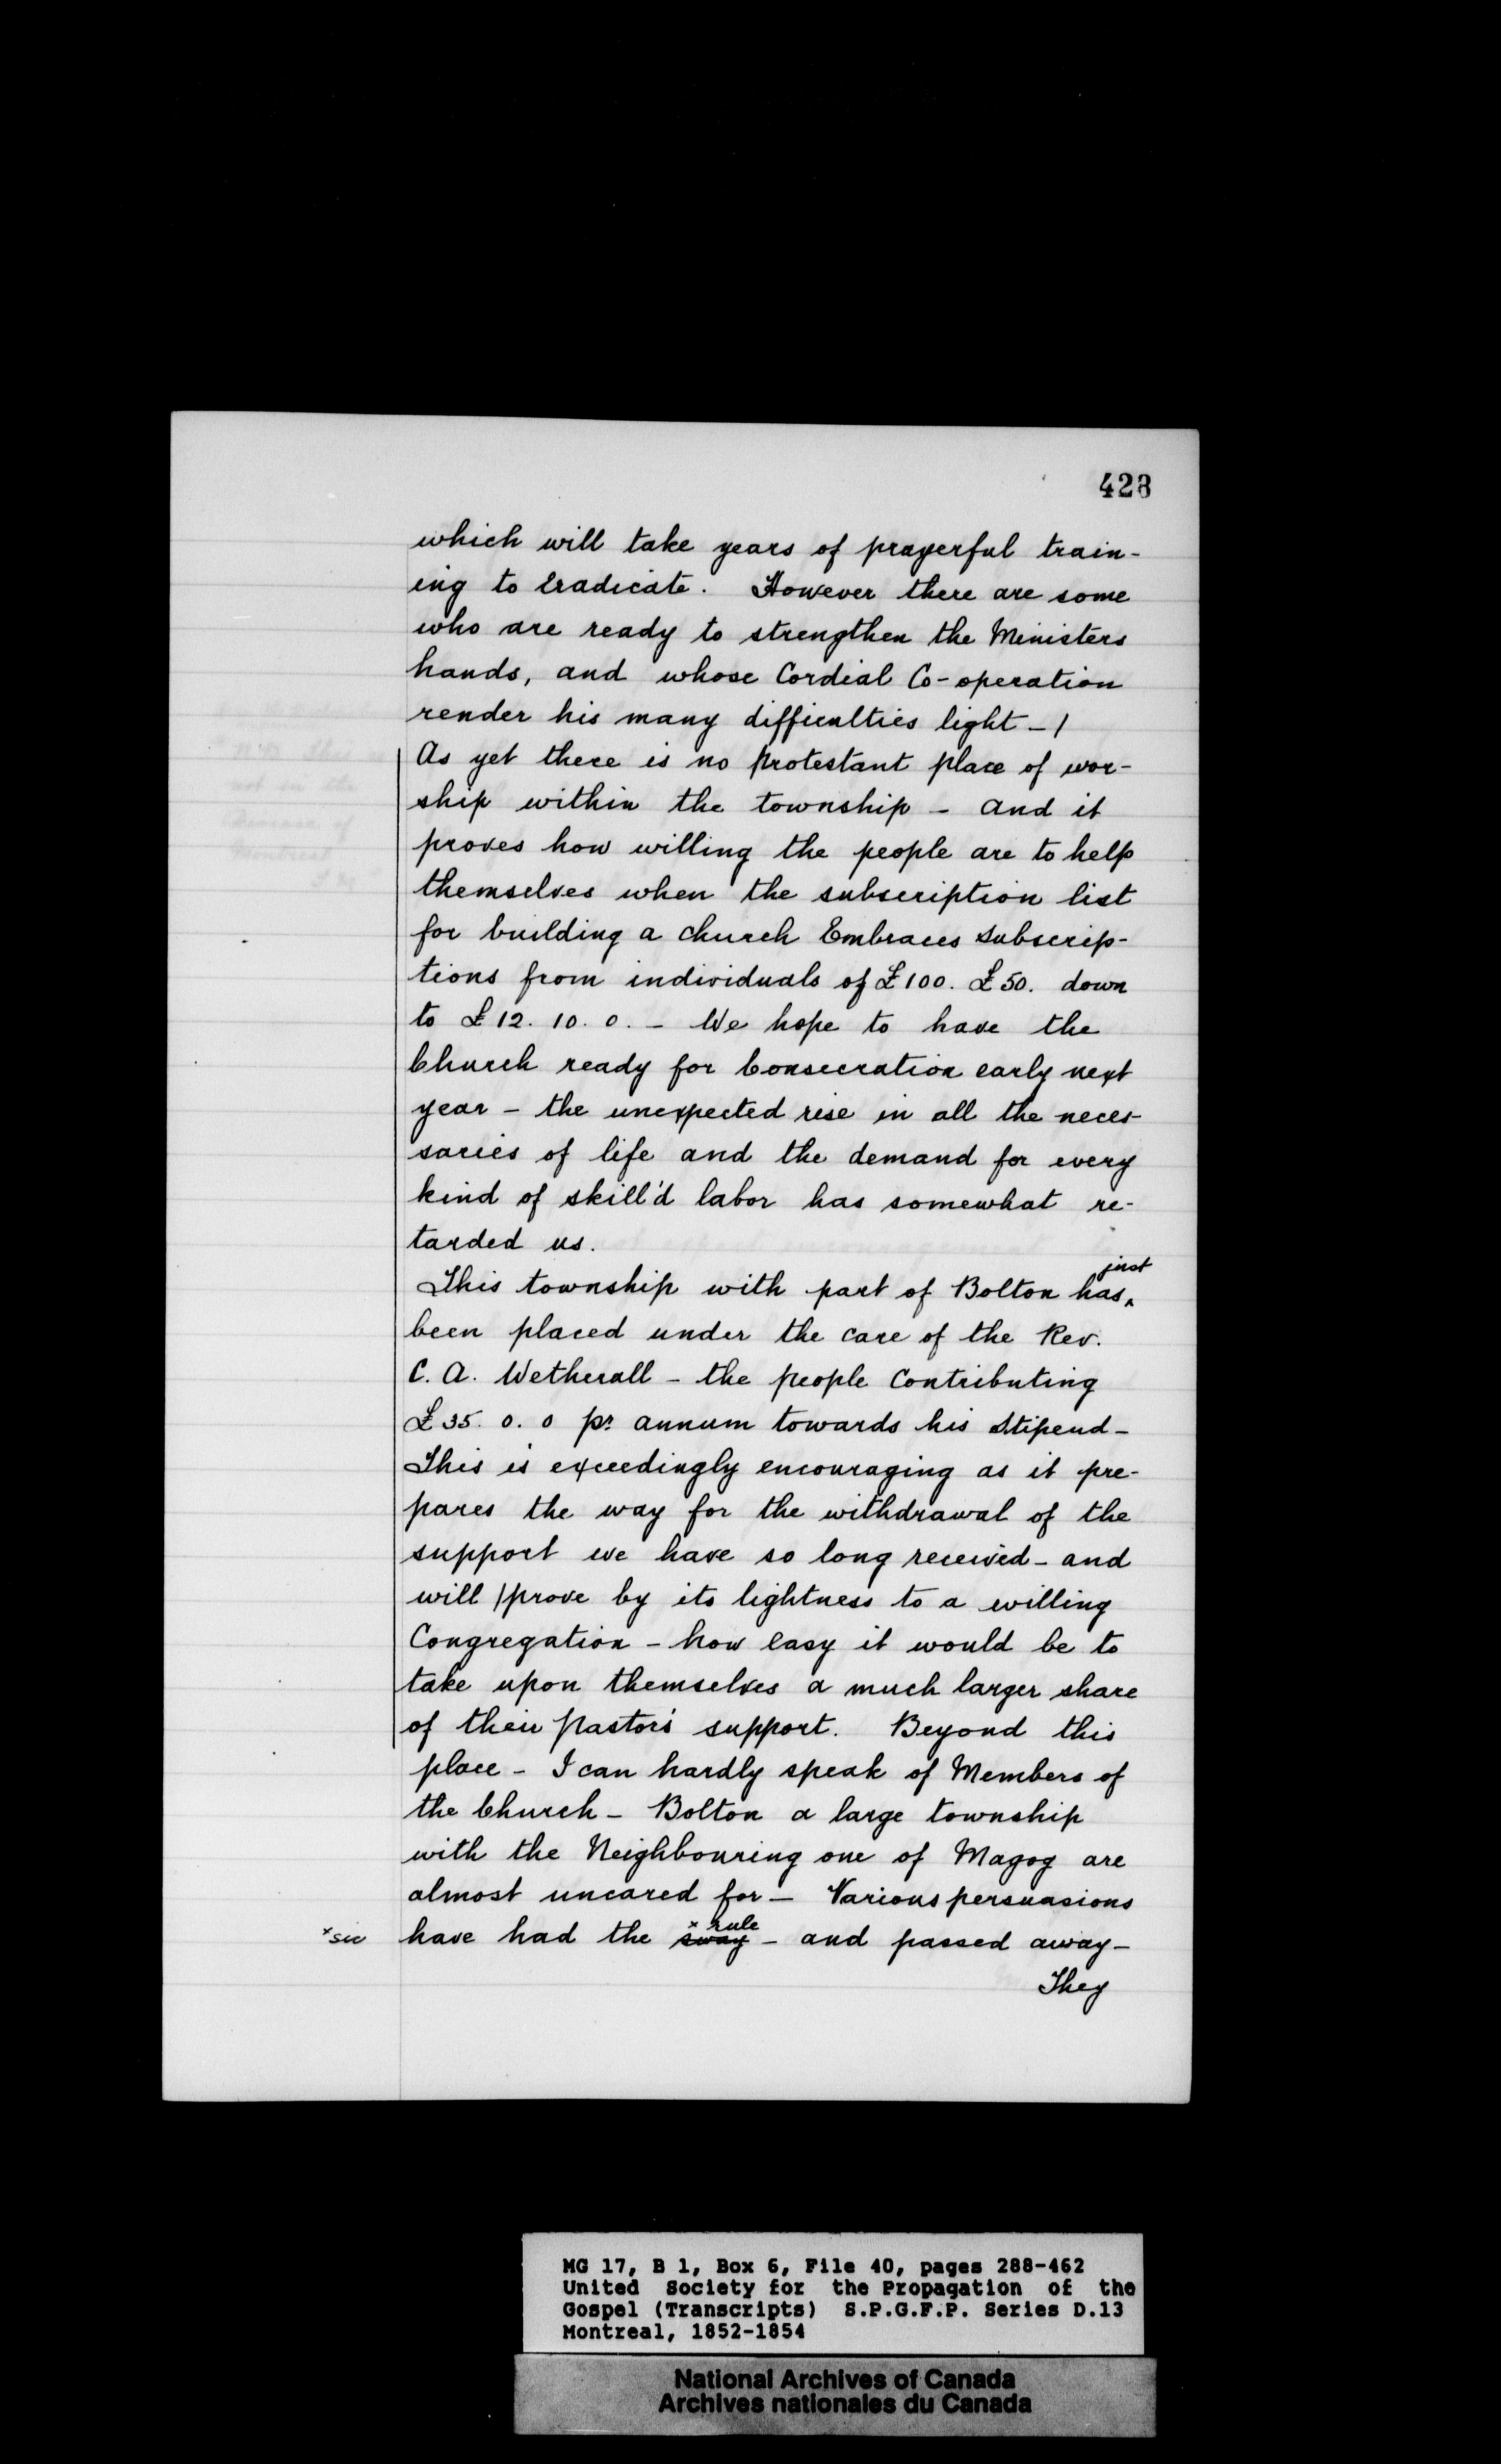 428
which will take years of prayerful train-
ing to Eradicate. However there are some
who are ready to strengthen the Ministers
hands, and whose Cordial Co-operation
render his many difficulties light - /
As yet there is no Protestant place of wor-
ship within the township - and it
proves how willing the people are to help
themselves when the subscription list
for building a Church Embraces Subscrip-
tions from individuals of £100. £50. down
to £12. 10. 0. - We hope to have the
Church ready for Consecration early next
year - the unexpected rise in all the neces-
saries of life and the demand for every
kind of skill'd labor has somewhat re-
tarded us.
just
This township with part of Bolton has
been placed under the care of the Rev.
C. A. Wetherall - the people Contributing
£35. 0. 0 pr. annum towards his Stipend -
This is exceedingly encouraging as it pre-
pares the way for the withdrawal of the
support we have so long received - and
will /prove by its lightness to a willing
Congregation - how easy it would be to
take upon themselves a much larger share
of their Pastor's support. Beyond this
place - I can hardly speak of Members of
the Church - Bolton a large township
with the Neighbouring one of Magog are
almost uncared for - Various persuasions
x rule
x sic have had the sway - and passed away -
They
MG 17, B 1, Box 6, File 40, pages 288-462
United Society for the Propagation of the
Gospel (Transcripts) S.P.G.F.P. Series D.13
Montreal, 1852-1854
National Archives of Canada
Archives nationales du Canada